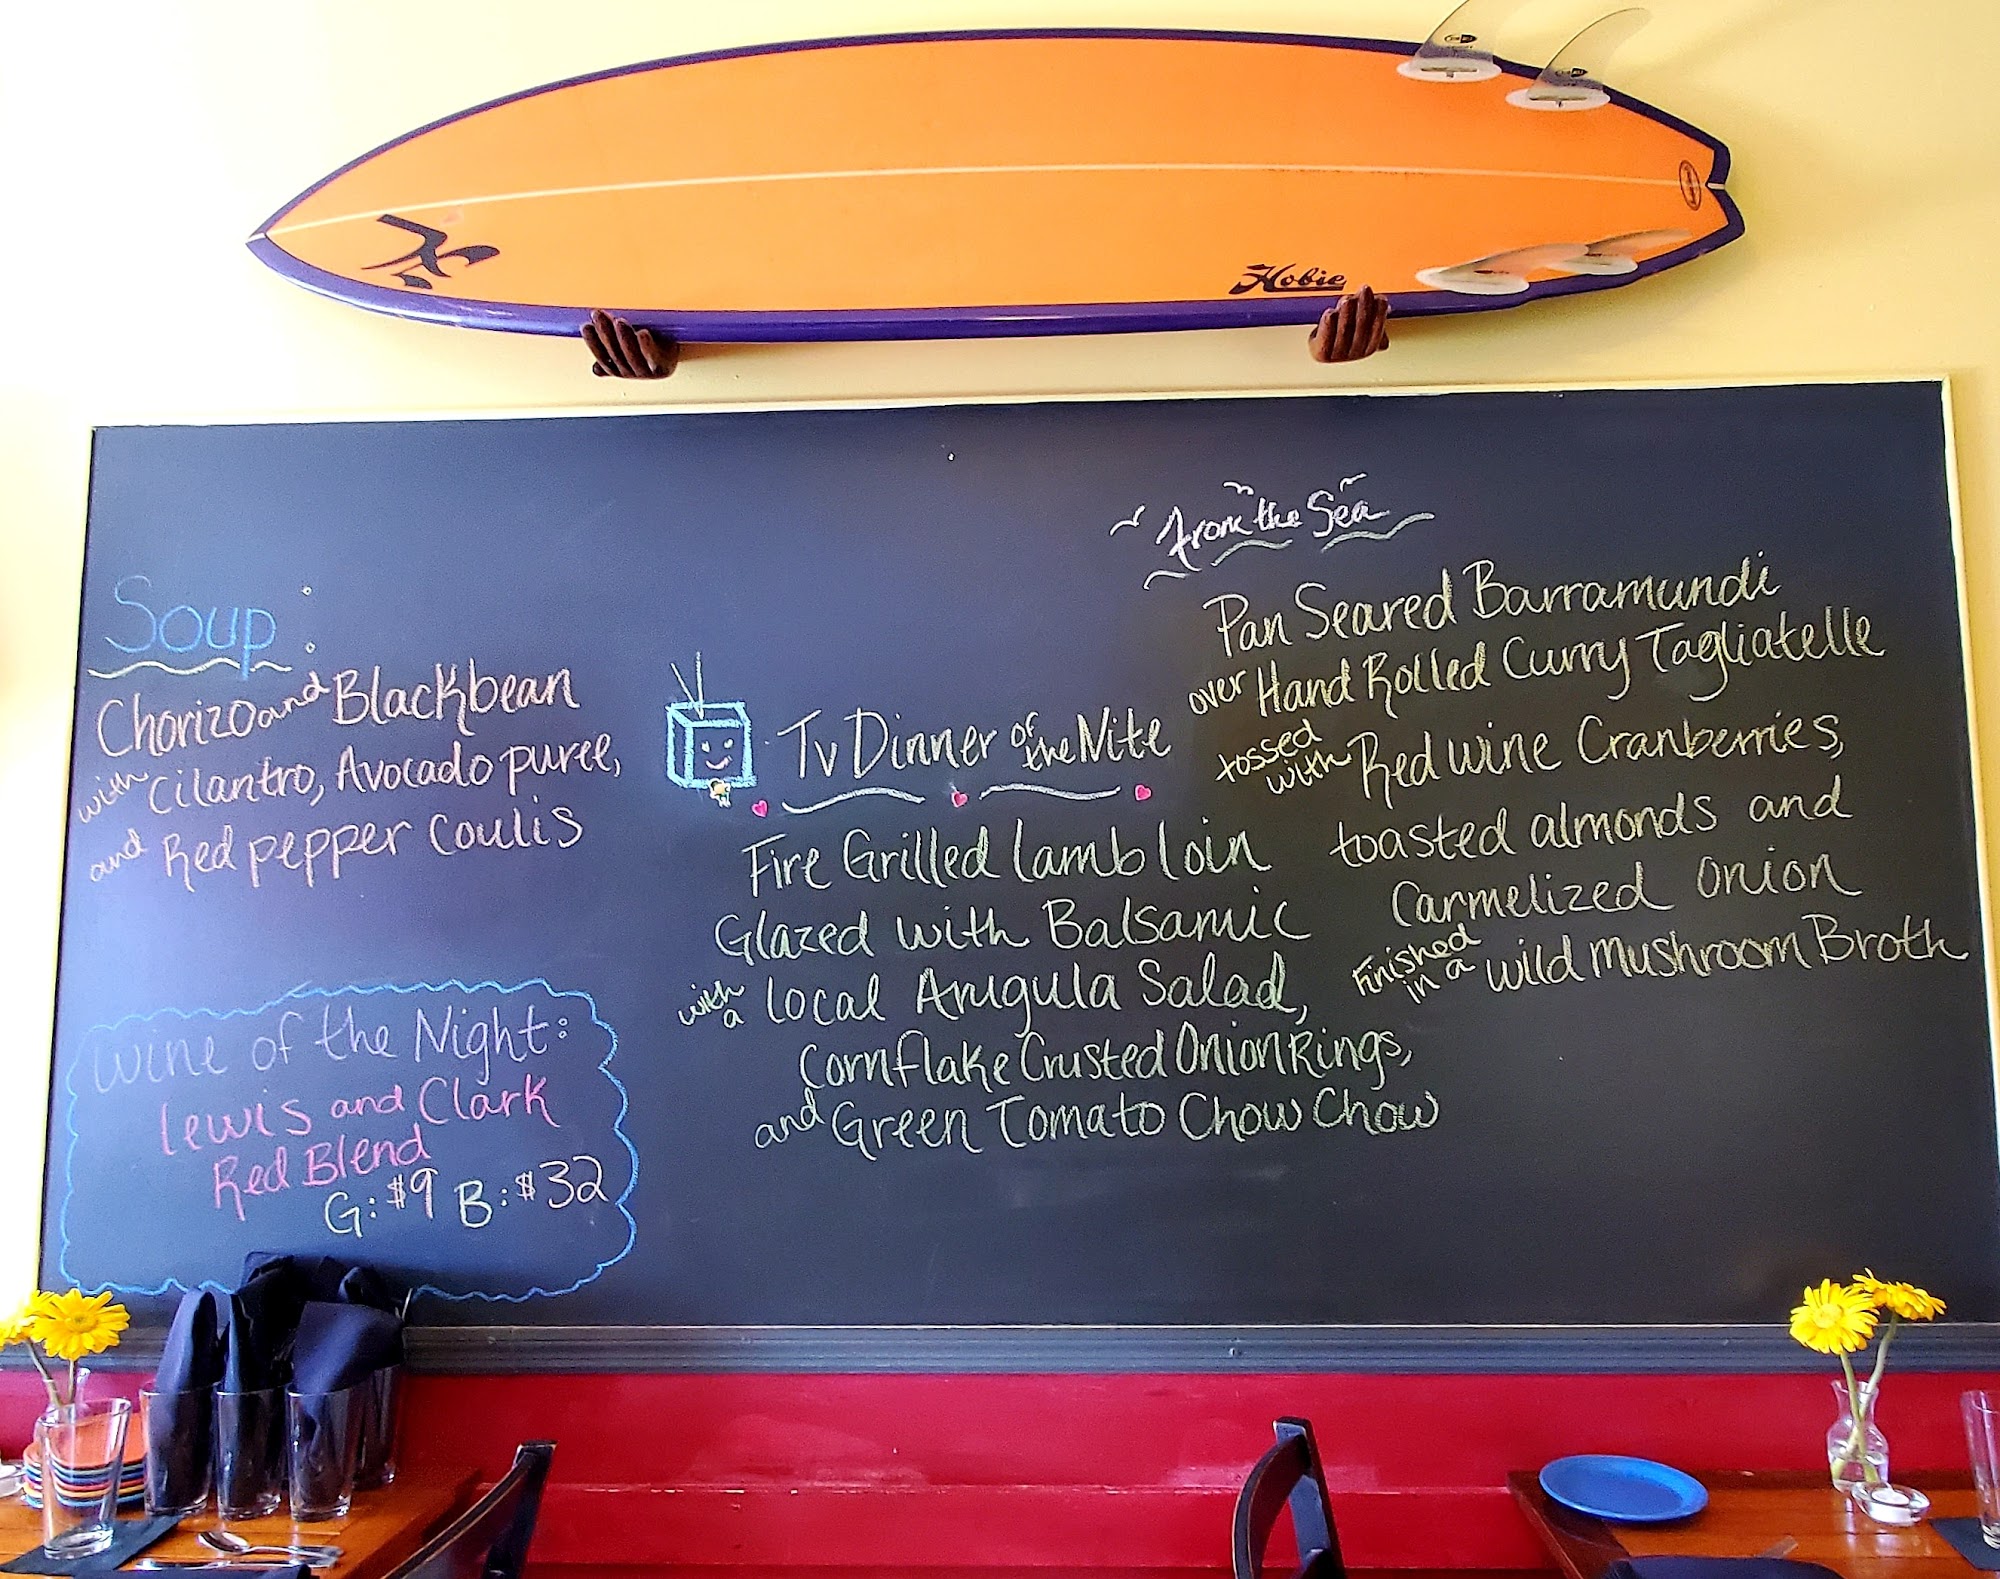 Hobie
Soup:
Chorizo and Blackbean
with Cilantro, Avocado puree,
and Red pepper Coulis
Wine of the Night:
Lewis and Clark
Red Blend
G: $9 B: $32
Tv Dinner of the Nite
Fire Grilled Lamb loin
Glazed with Balsamic
with a local Arugula Salad,
Cornflake Crusted Onion Rings,
and Green Tomato Chow Chow
From the Sea
Pan Seared Barramundi
over Hand Rolled Curry Tagliatelle
tossed with Red wine Cranberries,
toasted almonds and
Carmelized onion
Finished in a wild mushroom Broth